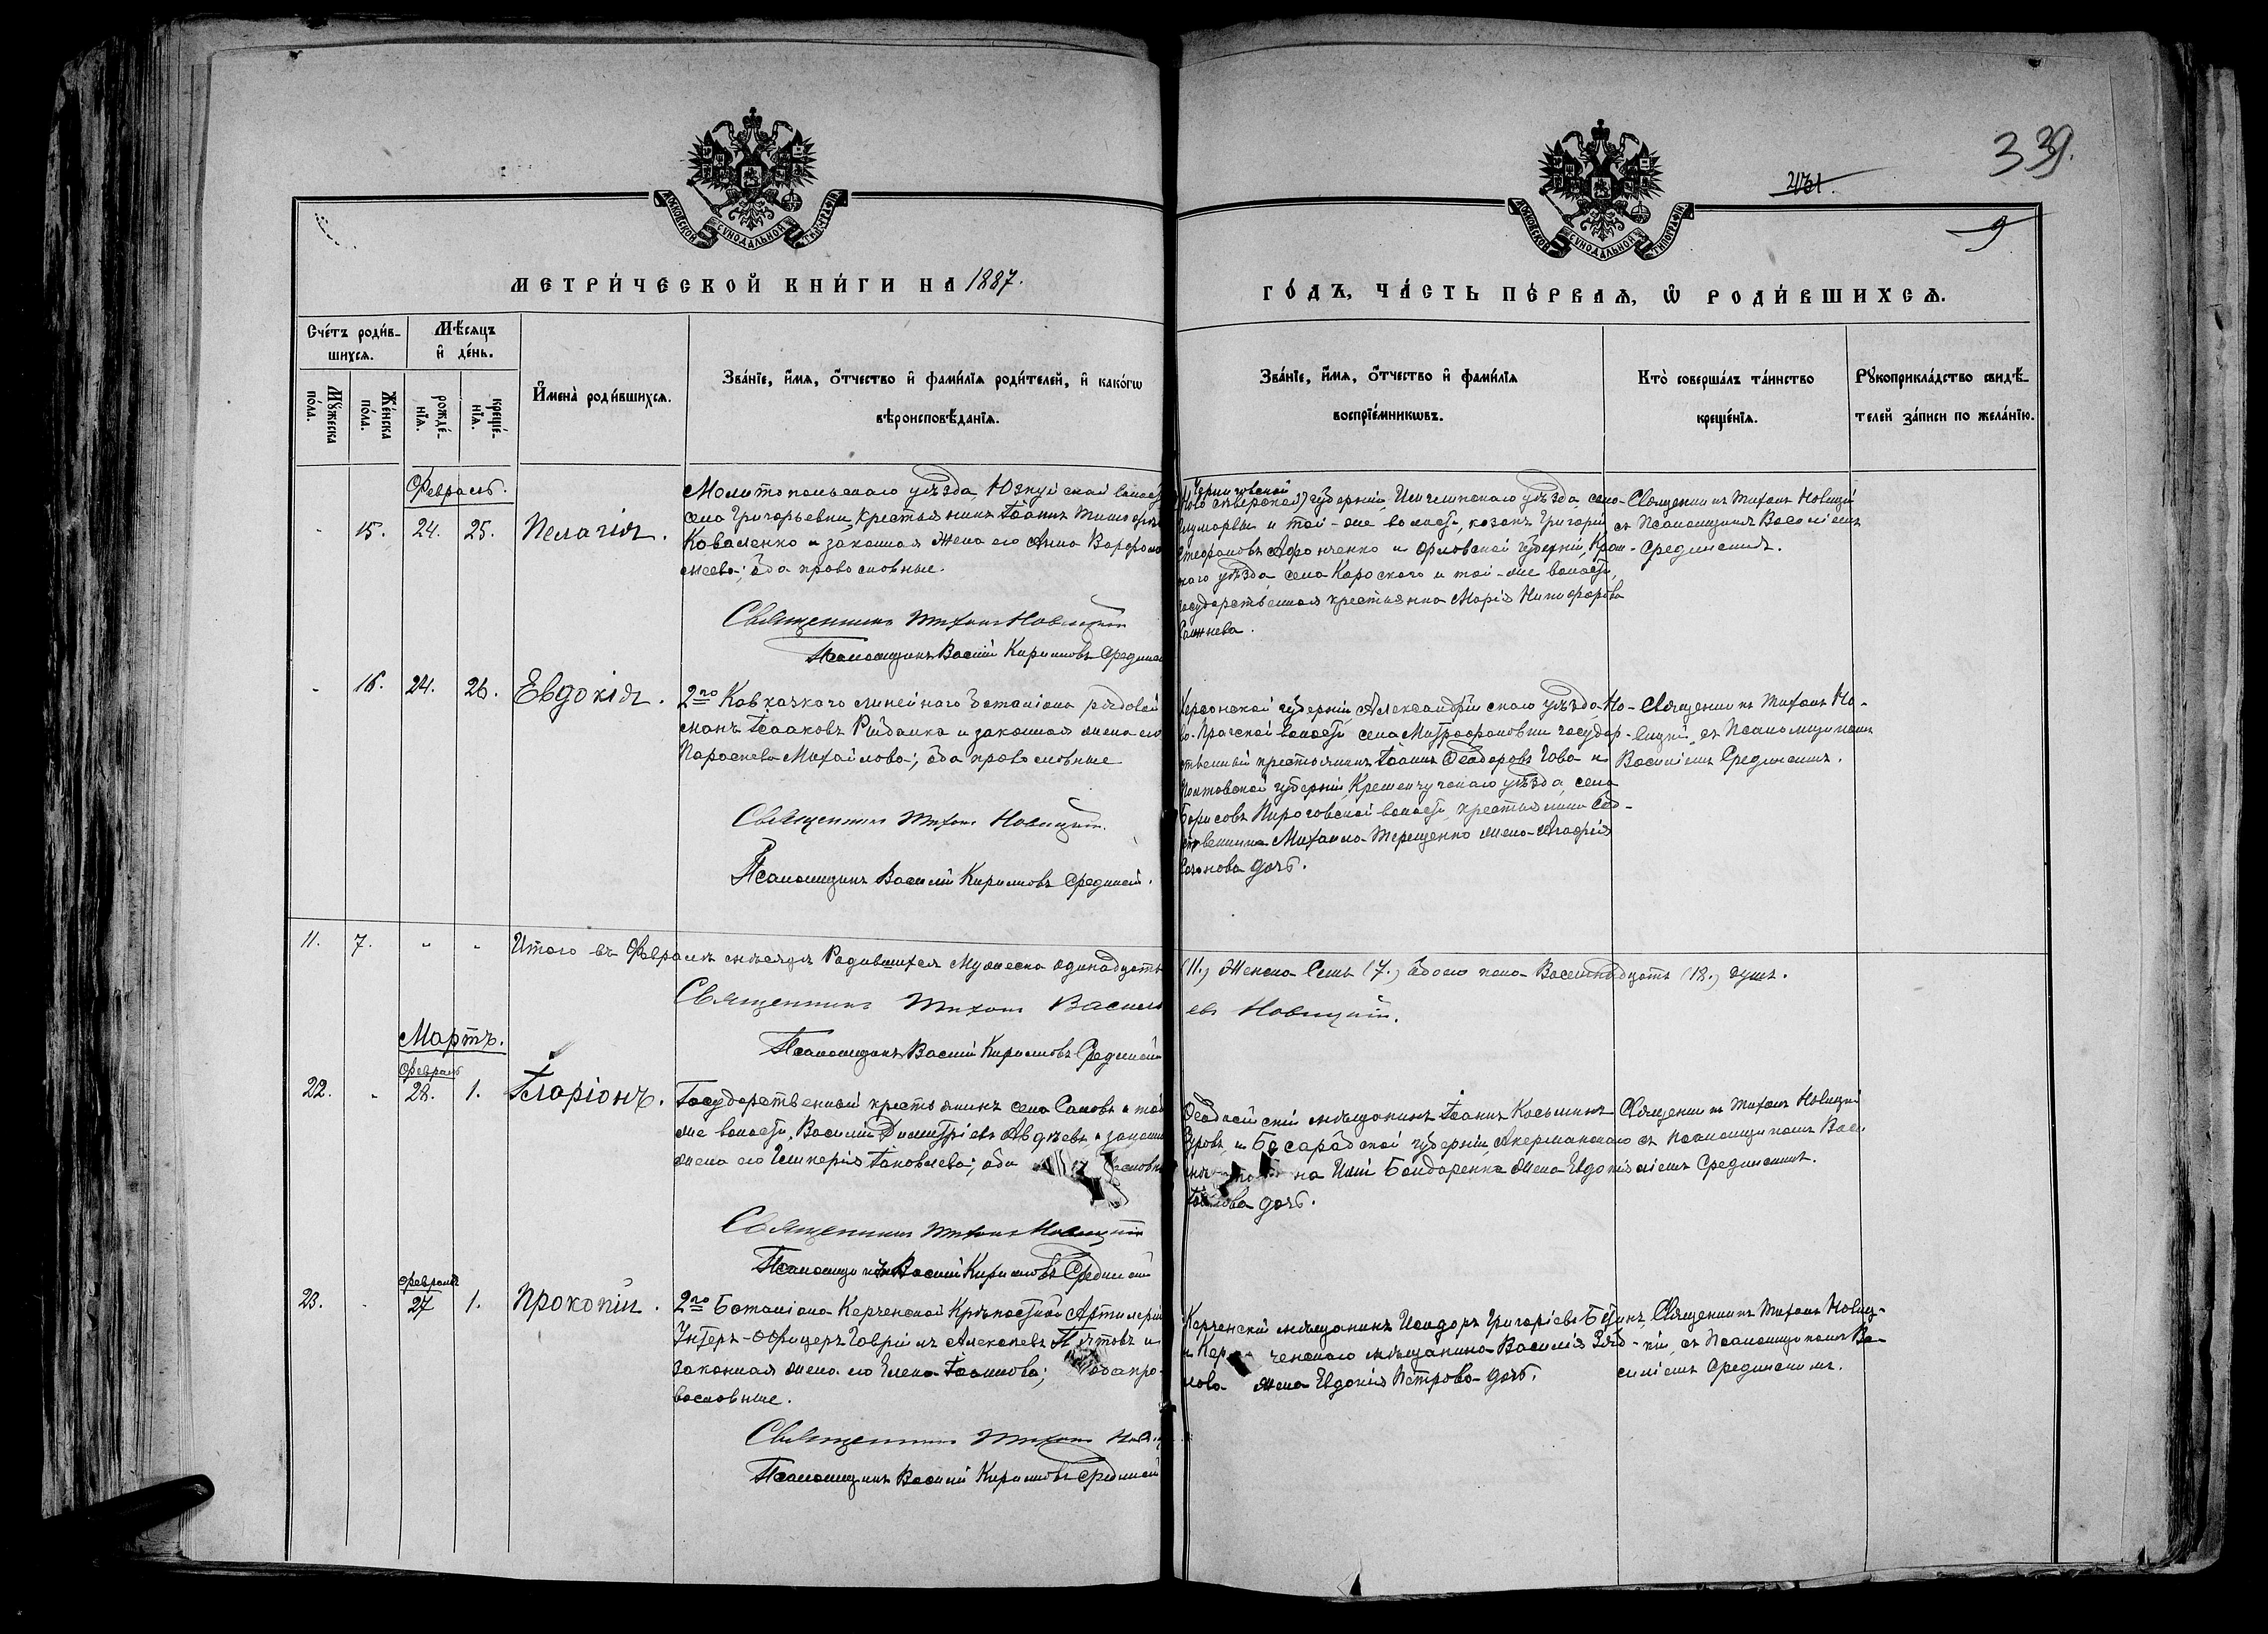 339.
9
МОСКОВСКОЙ СУНОДАЛЬНОЙ ТИПОГРАФІИ
МОСКОВСКОЙ СУНОДАЛЬНОЙ ТИПОГРАФІИ
МЕТРИ́ЧЕСКОЙ КНИ́ГИ НА 1887.
ГО́ДЪ, ЧА́СТЬ ПЕ́РВАѦ, Ѡ РОДИ́ВШИХСѦ.
Сче́тъ роди́в-
шихсѧ.
Мѣ́сѧцъ
и де́нь.
Мꙋ́жеска
по́ла.
Же́нска
по́ла.
рожде́-
нїѧ.
креще́-
нїѧ.
И҆мена̀ роди́вшихсѧ.
Зва́нїе, и҆́мѧ, ѻ҆́тчество и҆ фами́лїѧ роди́телей, и҆ како́гѡ
вѣроисповѣ́данїѧ.
Зва́нїе, и҆́мѧ, ѻ҆́тчество и҆ фами́лїѧ
воспрїе́мникѡвъ.
Кто̀ соверша́лъ та́инство
креще́нїѧ.
Рꙋкоприкла́дство свидѣ́-
телей за́писи по жела́нїю.
Февраль.
15. 24. 25. Пелагія.
Мелитопольскаго уѣзда, Юзкуйской волости
села Григорьевки, крестьянинъ Іоаннъ
Коваленко и законная жена его Анна Варфоло
меева; оба православные.
Священникъ Тихонъ Новицкій
Псаломщикъ Василій Кирилловъ Срединскій
Черниговской
губерніи, уѣзда, села
и той-же волости, козакъ Григорій
и Орловской губерніи, Кром-
скаго уѣзда села и той-же волости,
государственная крестьянка Марія Никифорова
Священникъ Тихонъ Новицкій
съ Псаломщикомъ Василіемъ
Срединскимъ.
16. 24. 26. Евдокія.
2го Кавказкаго линейнаго баталіона рядовой
Исааковъ Рыбалка и законная жена его
Параскева Михайлова; оба православные
Священникъ Тихонъ Новицкій.
Псаломщикъ Василій Кирилловъ Срединскій.
Херсонской губерніи, Александрійскаго уѣзда, Но-
во-Прагской волости села Митрофановки государ-
ственный крестьянинъ Іоаннъ Ѳеодоровъ и
Полтавской губерніи, Кременчугскаго уѣзда, села
Борисовъ Пироговской волости, крестьянина соб-
ственника Михаила Терещенко жена Агафія
дочь.
Священникъ Тихонъ Но-
вицкій, съ Псаломщикомъ
Василіемъ Срединскимъ.
11. 7. " " Итого въ Февралѣ мѣсяцѣ Родившихся Мужеска одинадцать (11.) Женска Семь (7.) обоего пола Восемнадцать (18.) душъ.
Священникъ Тихонъ Василь евъ Новицкій.
Псаломщикъ Василій Кирилловъ Срединскій
Мартъ.
Февраль
22. 28. 1. Іларіонъ.
Государственный крестьянинъ села и той
же волости, Василій Димитріевъ Авдѣевъ и законная
жена его Гликерія Іаковлева; оба
Священникъ Тихонъ Новицкій
Псаломщикъ Василій Кирилловъ Срединскій
Ѳеодосійскій мѣщанинъ Іоаннъ Косьминъ
и Бессарабской губерніи, Акерманскаго
Бондаренка жена Евдокія
дочь.
Священникъ Тихонъ Новицкій
съ Псаломщикомъ Васи
ліемъ Срединскимъ.
Февраль
23. 27 1. Прокопій.
2го Баталіона Керченской Крѣпостной Артилеріи
Унтеръ-Офицеръ Гавріилъ Алексѣевъ и
законная жена его Елена Іоаннова; оба пра-
вославные.
Священникъ Тихонъ
Псаломщикъ Василій Кирилловъ Срединскій
Керченскій мѣщанинъ Исидоръ Григорьевъ
и Керченскаго мѣщанина Василія
жена Евдокія Петрова дочь.
Священникъ Тихонъ Новиц-
кій, съ Псаломщикомъ Ва-
силіемъ Срединскимъ.